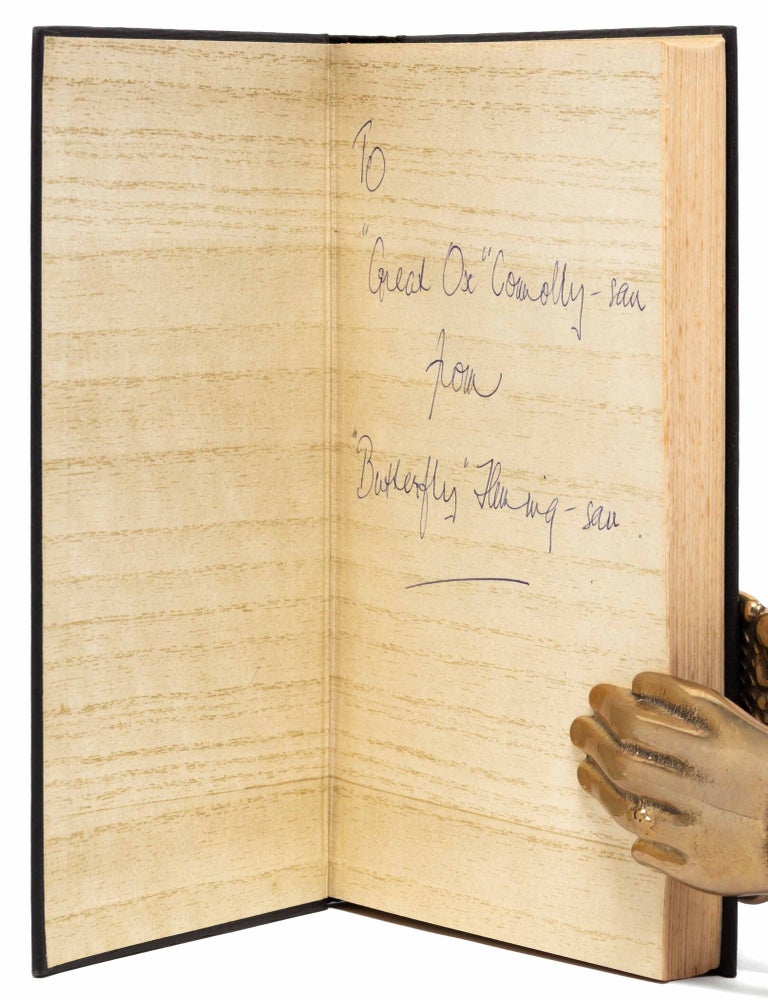 To
"Great Ox" Connolly-san
from
"Butterfly" Fleming-san.